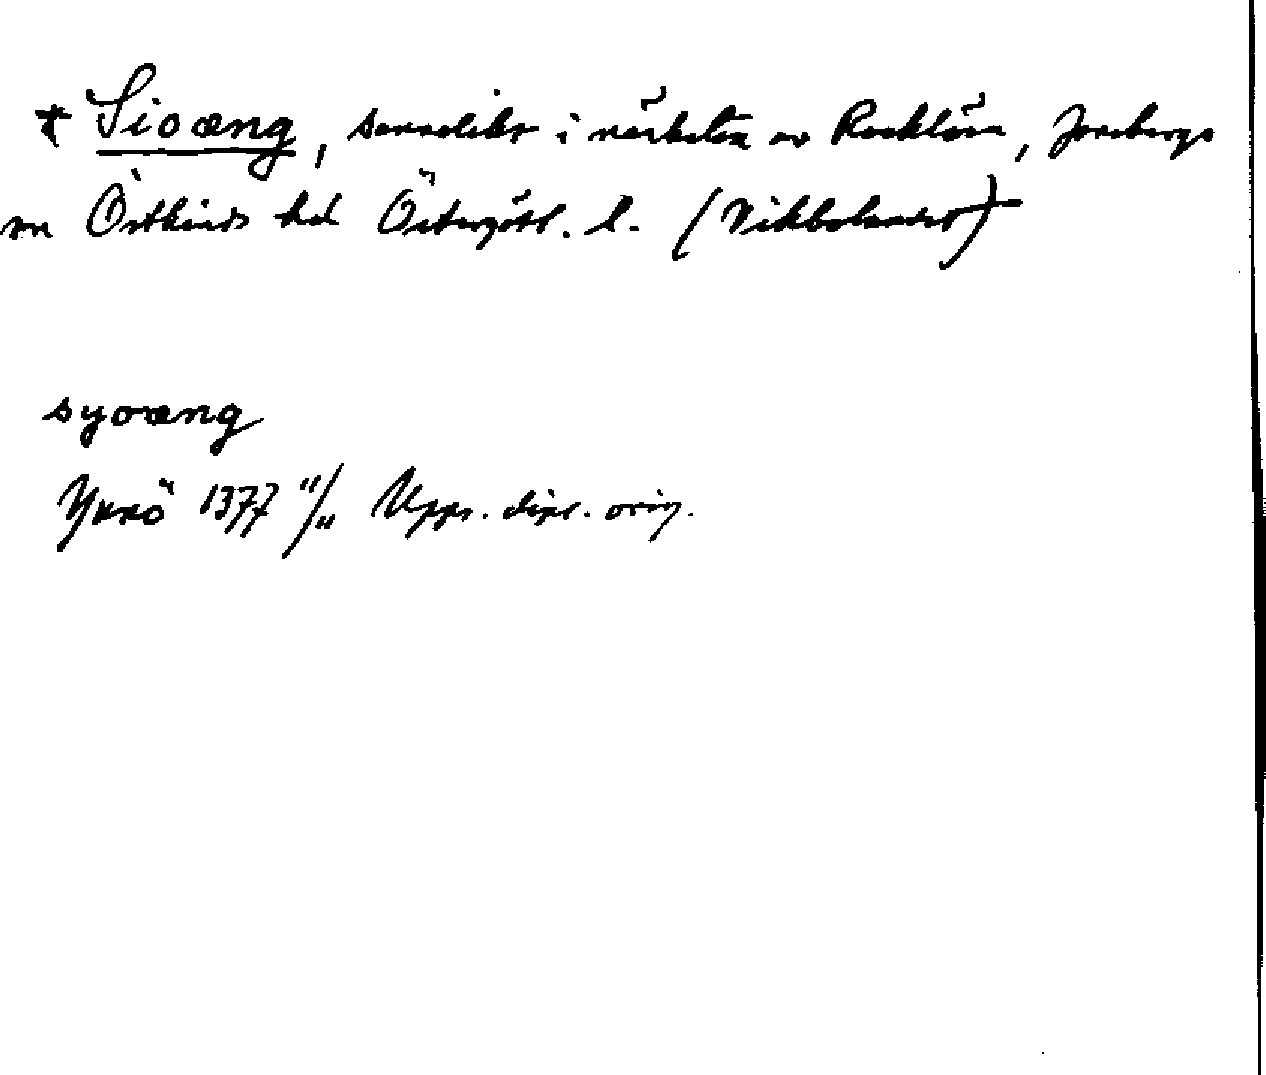 * Sioæng, sannolikt i närheten av Rocklösa, Jonsbergs
sn Östkinds hd Östergötl. l. (Vikbolandet)
syoæng
Yxnö 1377 11/11 Upps. dipl. orig.